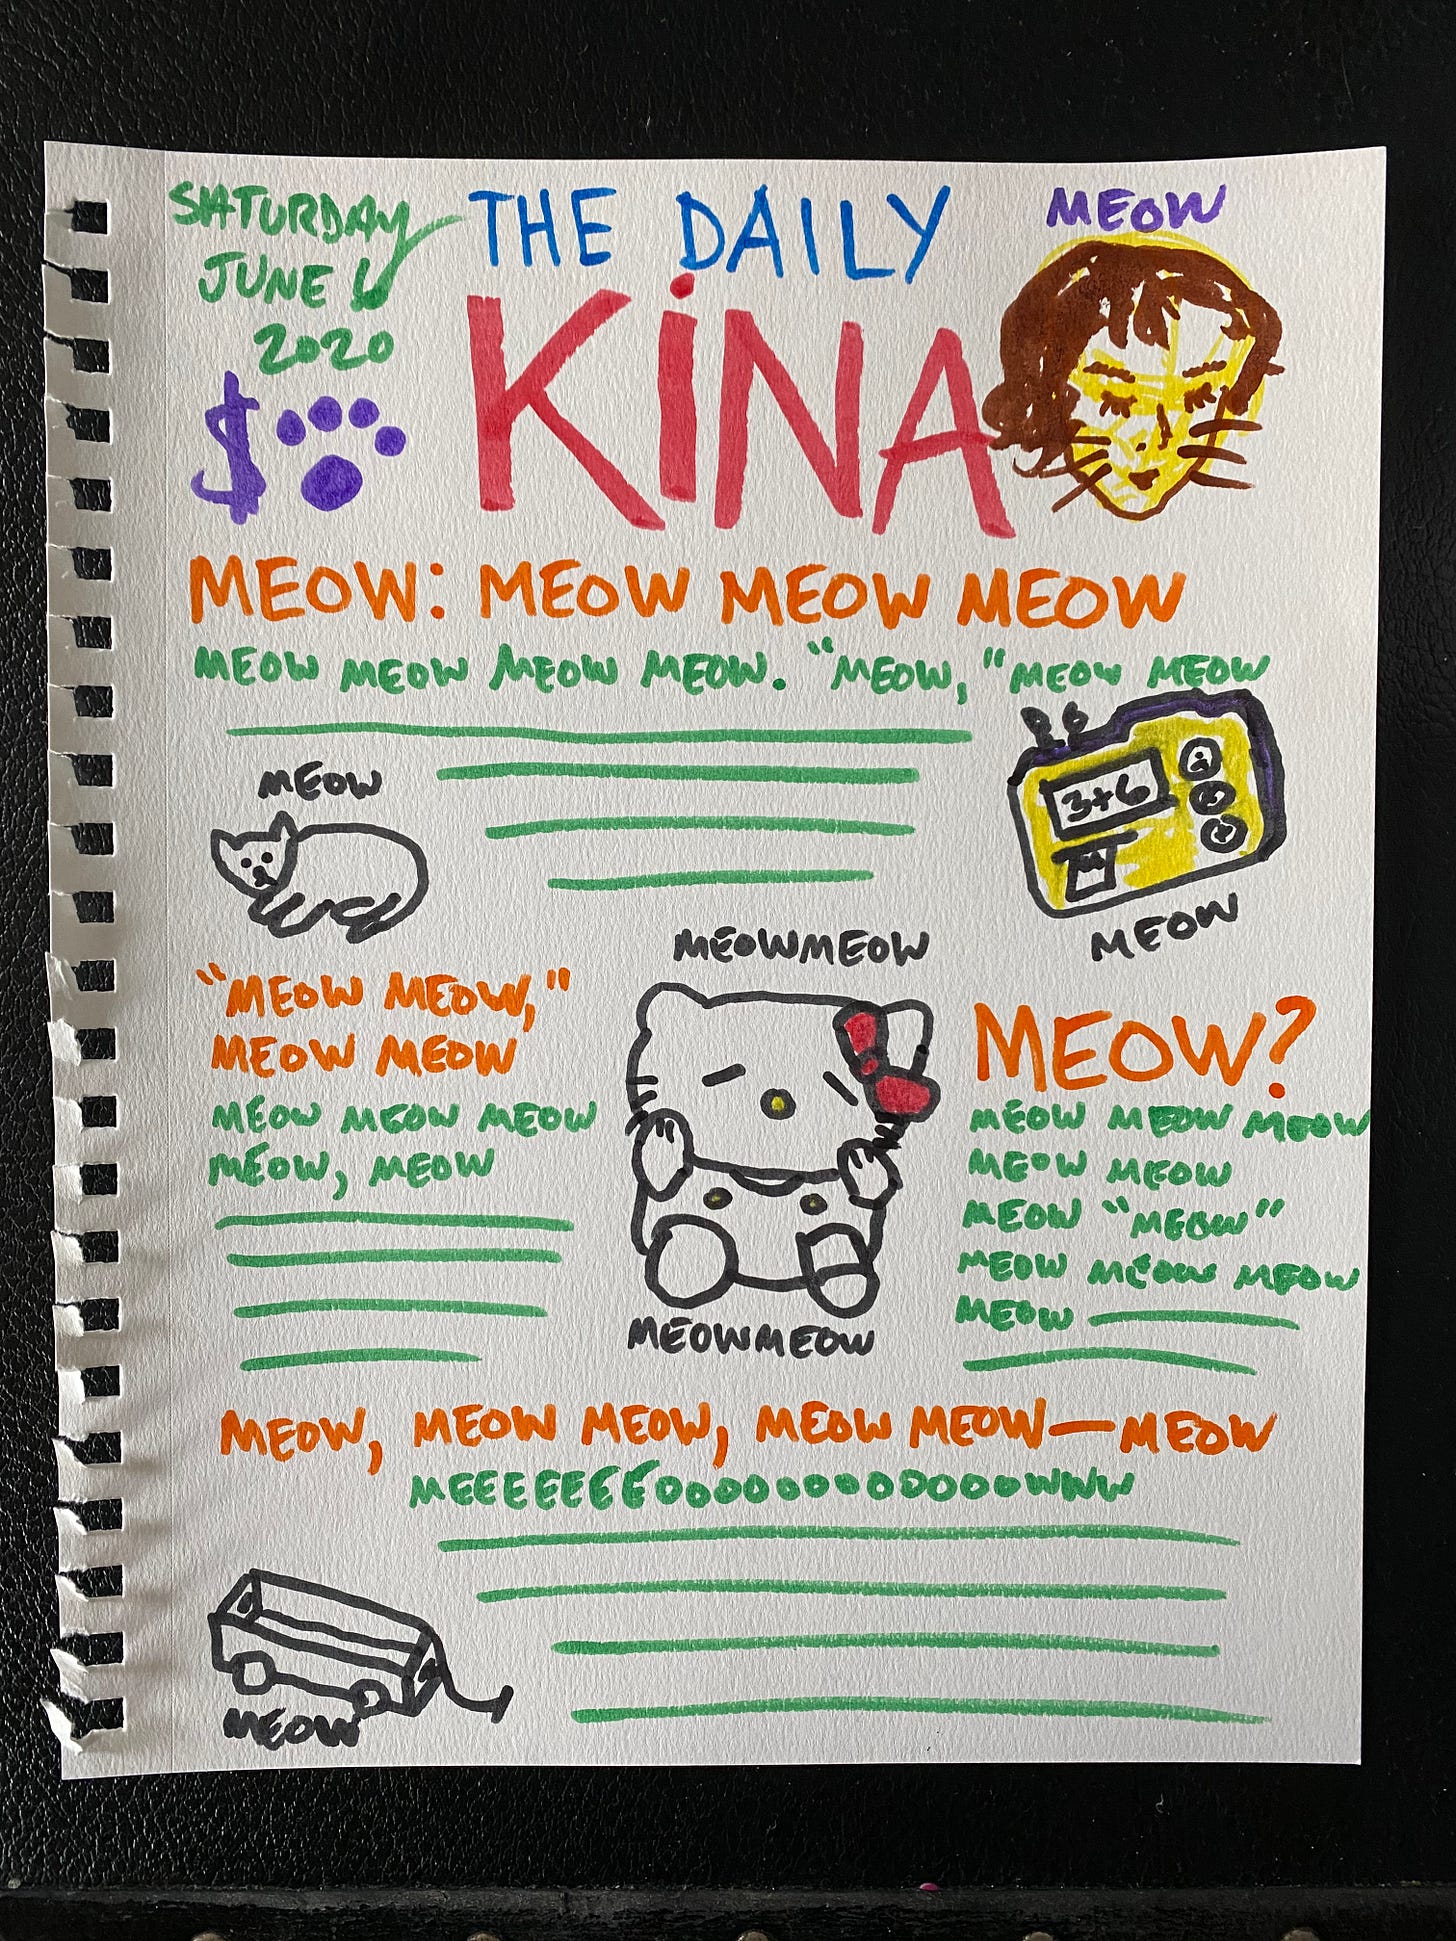 SATURDAY
JUNE 6
2020
THE DAILY
KiNA
MEOW
$
MEOW: MEOW MEOW MEOW
MEOW MEOW MEOW MEOW. "MEOW," MEOW MEOW
MEOW
3+6
MEOW
"MEOW MEOW,"
MEOW MEOW
MEOW MEOW MEOW
MEOW, MEOW
MEOWMEOW
MEOWMEOW
MEOW?
MEOW MEOW MEOW
MEOW MEOW
MEOW "MEOW"
MEOW MEOW MEOW
MEOW
MEOW, MEOW MEOW, MEOW MEOW—MEOW
MEEEEEEEOOOOOOOOOOOOOOWWW
MEOW